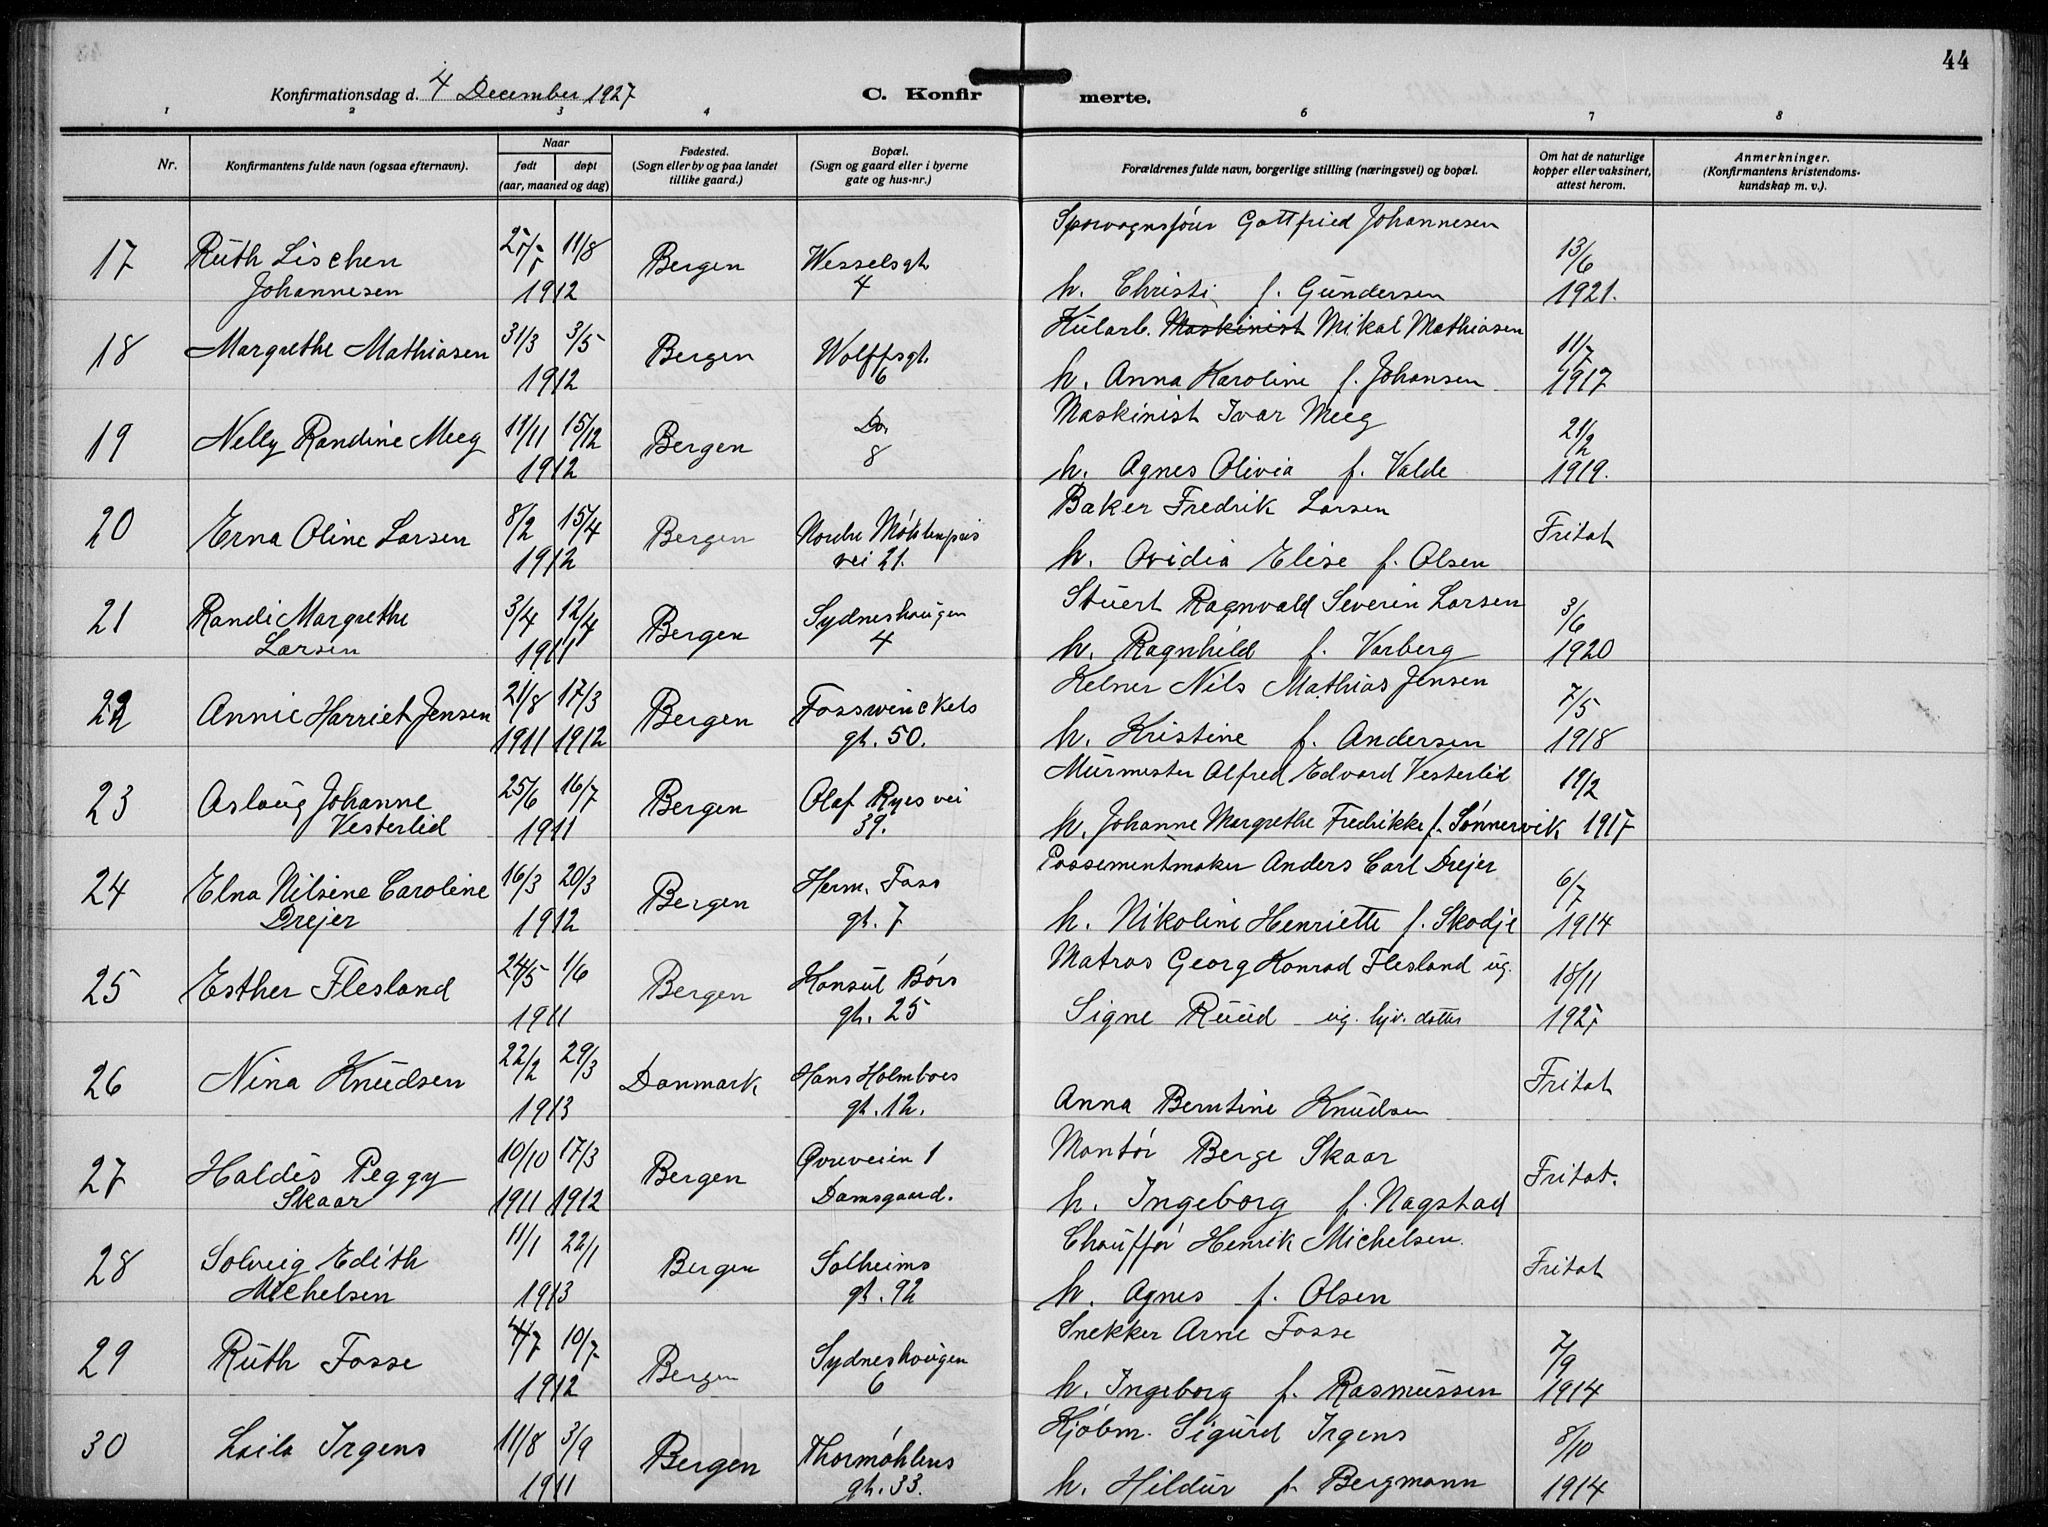 44
Konfirmationsdag d. 4 December 1927
C. Konfir
merte.
1 2 3 4 6 7 8
Nr.
Konfirmantens fulde navn (ogsaa efternavn).
Naar
født døpt
(aar, maaned og dag)
Fødested.
(Sogn eller by og paa landet
tillike gaard.)
Bopæl.
(Sogn og gaard eller i byerne
gate og hus-nr.)
Forældrenes fulde navn, borgerlige stilling (næringsvei) og bopæl.
Om hat de naturlige
kopper eller vaksinert,
attest herom.
Anmerkninger.
(Konfirmantens kristendoms-
kundskap m. v.).
17 Ruth Lischen 11/8 Bergen Wesselsgt. Sporvognsfører Gottfried Johannesen 13/6
Johannesen 1912 4 h. Christi f. Gundersen 1921.
18 Margrethe Mathiasen 31/3 3/5 Bergen Wolffsgt. Kularb. Maskinist Mikal Mathiasen 11/7
1912 6 h. Anna Karoline f. Johansen 1917
19 Nelly Randine Meeg 11/11 15/12 Bergen Do. Maskinist Ivar Meeg 21/2
1912 8 h. Agnes Olivia f. Valde 1919.
20 Erna Oline Larsen 8/2 15/4 Bergen Nordre Møhlenpris Baker Fredrik Larsen Fritat
1912 vei 21. h. Ovidia Elise f. Olsen
21 Randi Margrethe 3/4 12/4 Bergen Sydneshaugen Stuert Ragnvald Severin Larsen 3/6
Larsen 1911 4 h. Ragnhild f. Varberg 1920
22 Annie Harriet Jensen 21/8 17/3 Bergen Fosswinckels Kelner Nils Mathias Jensen 7/5
1911 1912 gt. 50. h. Kristine f. Andersen 1918
23 Aslaug Johanne 25/6 16/7 Bergen Olaf Ryes vei Murmester Alfred Edvard Vesterlid 19/2
Vesterlid 1911 39. h. Johanne Margrethe Fredrikke f. Sønnervik 1917
24 Elna Nilsine Caroline 16/3 20/3 Bergen Herm. Foss Possementmaker Anders Carl Drejer 6/7
Drejer 1912 gt. 7 h. Nikoline Henriette f. Skodje 1914
25 Esther Flesland 24/5 1/6 Bergen Konsul Børs Matros Georg Konrad Flesland ug. 18/11
1911 gt. 25 Signe Ruud ug. hjv. datter 1927
26 Nina Knudsen 22/2 29/3 Danmark Hans Holmboes Fritat
1913 gt. 12. Anna Berntine Knudsen
27 Haldis Peggy 10/10 17/3 Bergen Øvreveien 1 Montør Berge Skaar Fritat.
Skaar 1911 1912 Damsgaard. h. Ingeborg f. Nagstad
28 Solveig Edith 11/1 22/1 Bergen Solheims Chauffør Henrik Michelsen. Fritat
Michelsen 1913 gt. 92 h. Agnes f. Olsen
29 Ruth Fosse 4/7 10/7 Bergen Sydneshaugen Snekker Arne Fosse 7/9
1912 6 h. Ingeborg f. Rasmussen 1914
30 Laila Irgens 11/8 3/9 Bergen Thormøhlens Kjøbm. Sigurd Irgens 8/10
1911 gt. 33. h. Hildur f. Bergmann 1914